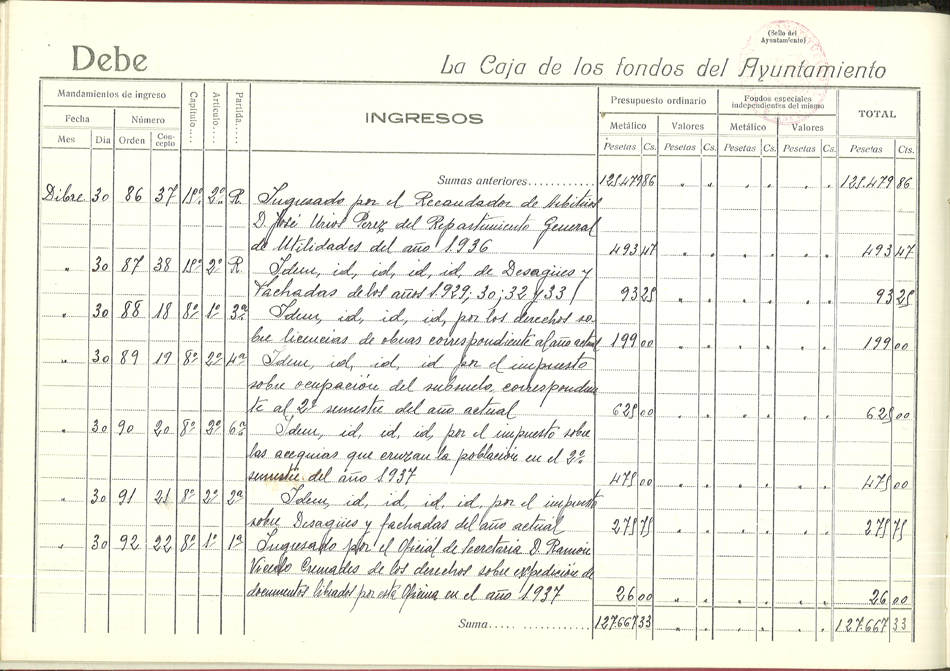 (Sello del
Ayuntamiento)
Debe
La Caja de los fondos del Ayuntamiento
Mandamientos de ingreso Capítulo.... Artículo.... Partida.... INGRESOS Presupuesto ordinario Fondos especiales independientes del mismo TOTAL
Fecha Número Metálico Valores Metálico Valores
Mes Dia Orden Concepto Pesetas Cs. Pesetas Cs. Pesetas Cs. Pesetas Cs. Pesetas Cts.
Sumas anteriores............ 125.479 86 " " " " " " 125.479 86
Dibre. 30 86 37 1º 2º R. Ingresado por el Recaudador de Arbitrios
D. José Urios Perez del Repartimiento General
de Utilidades del año 1.936 493 47 " " " " " " 493 47
" 30 87 38 1º 2º R. Idem, id, id, id, id, de Desagües y
Fachadas de los años 1.929; 30; 32 y 33 93 25 " " " " " " 93 25
" 30 88 18 8º 1º 3ª Idem, id, id, id, por los derechos so-
bre licencias de obras correspondiente al año actual 199 00 " " " " " " 199 00
" 30 89 19 8º 2º 4ª Idem, id, id, id por el impuesto
sobre ocupación del subsuelo, correspondien-
te al 2º semestre del año actual 625 00 " " " " " " 625 00
" 30 90 20 8º 2º 6ª Idem, id, id, id, por el impuesto sobre
las acequias que cruzan la población en el 2º
semestre del año 1.937 475 00 " " " " " " 475 00
" 30 91 21 8º 2º 2ª Idem, id, id, id, id, por el impuesto
sobre Desagües y fachadas del año actual 275 75 " " " " " " 275 75
" 30 92 22 8º 1º 1ª Ingresado por el Oficial de Secretaria D. Ramón
Vicedo Cremades de los derechos sobre expedición de
documentos librados por esta Oficina en el año 1.937 26 00 " " " " " " 26 00
Suma..... ............ 127.667 33 " " " " " " 127.667 33